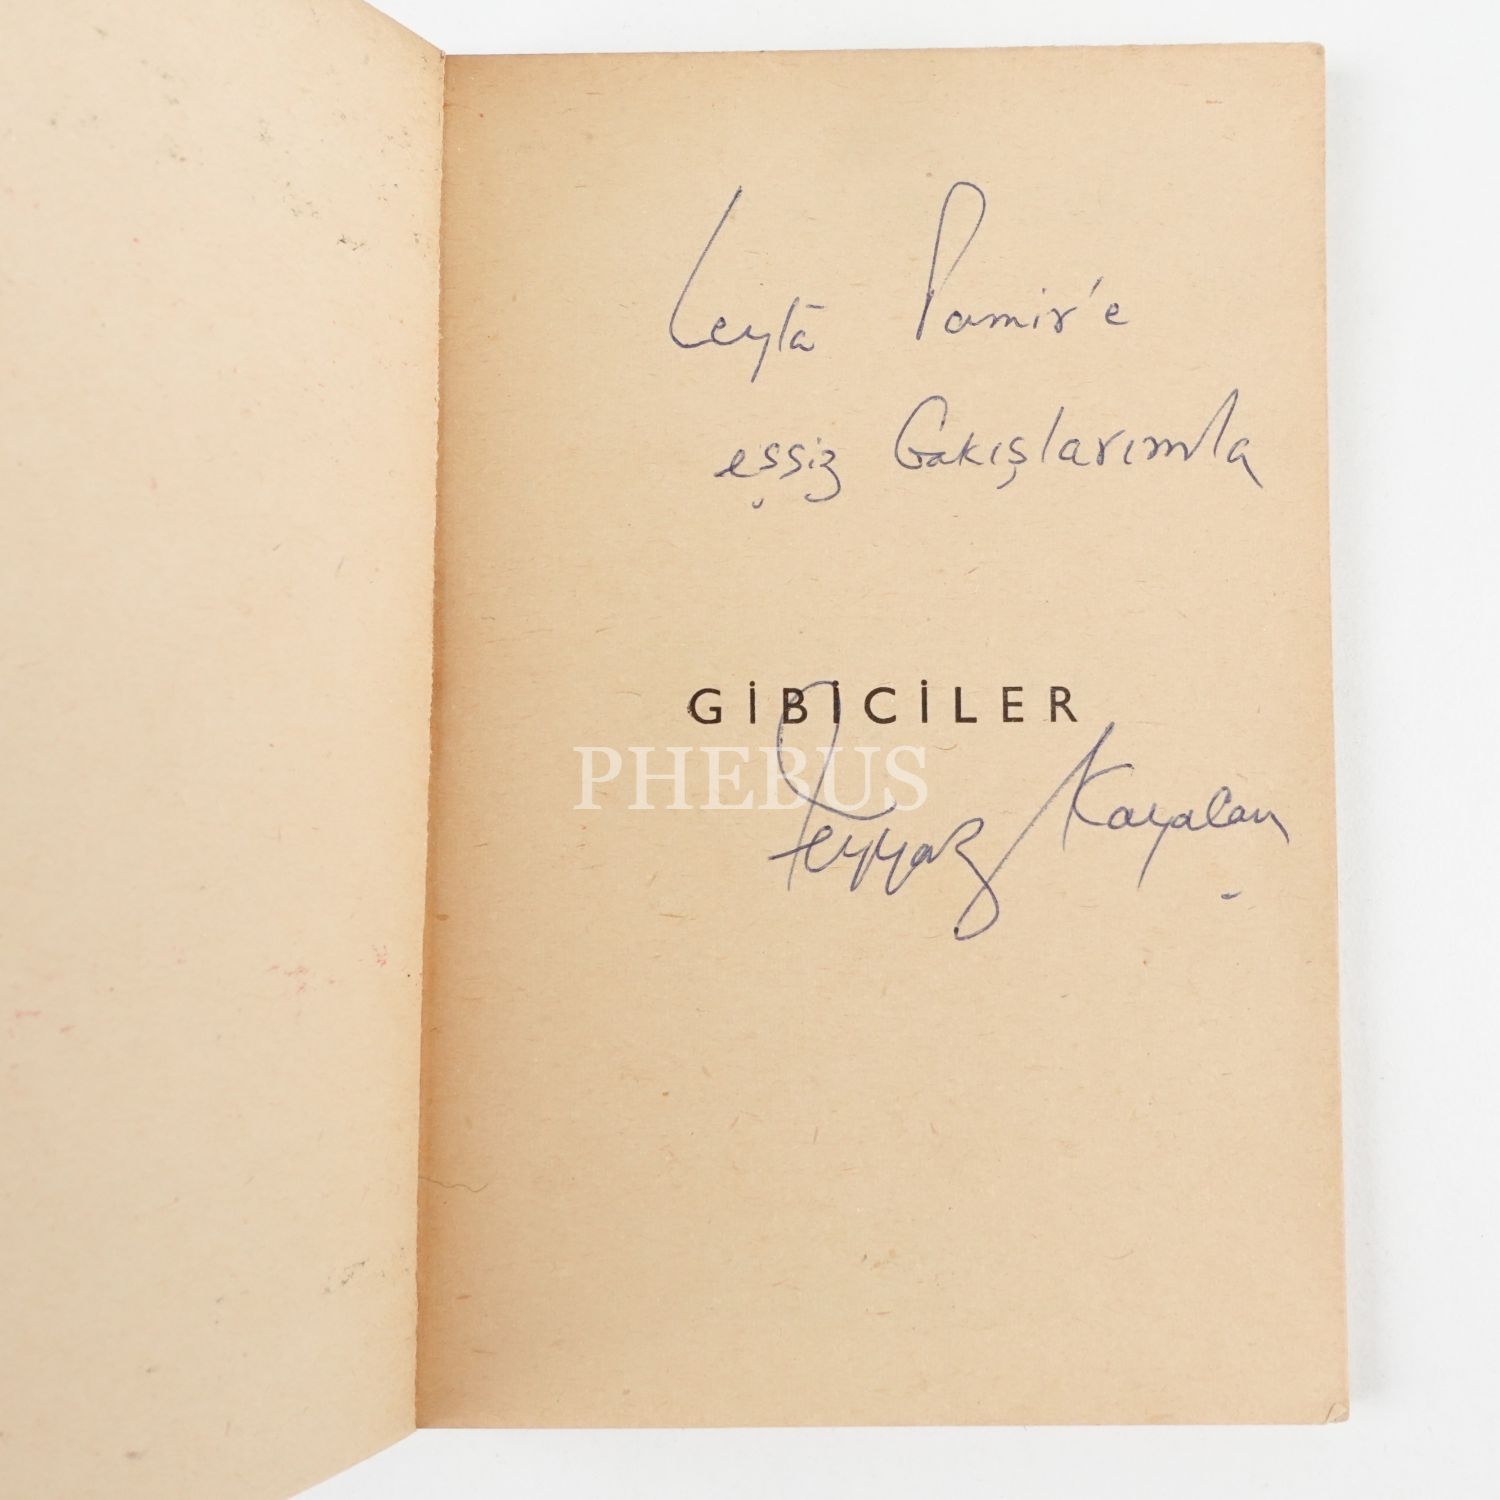 Leylâ Pamir'e
eşsiz bakışlarımla
GİBİCİLER
PHEBUS
Feyyaz Kayacan